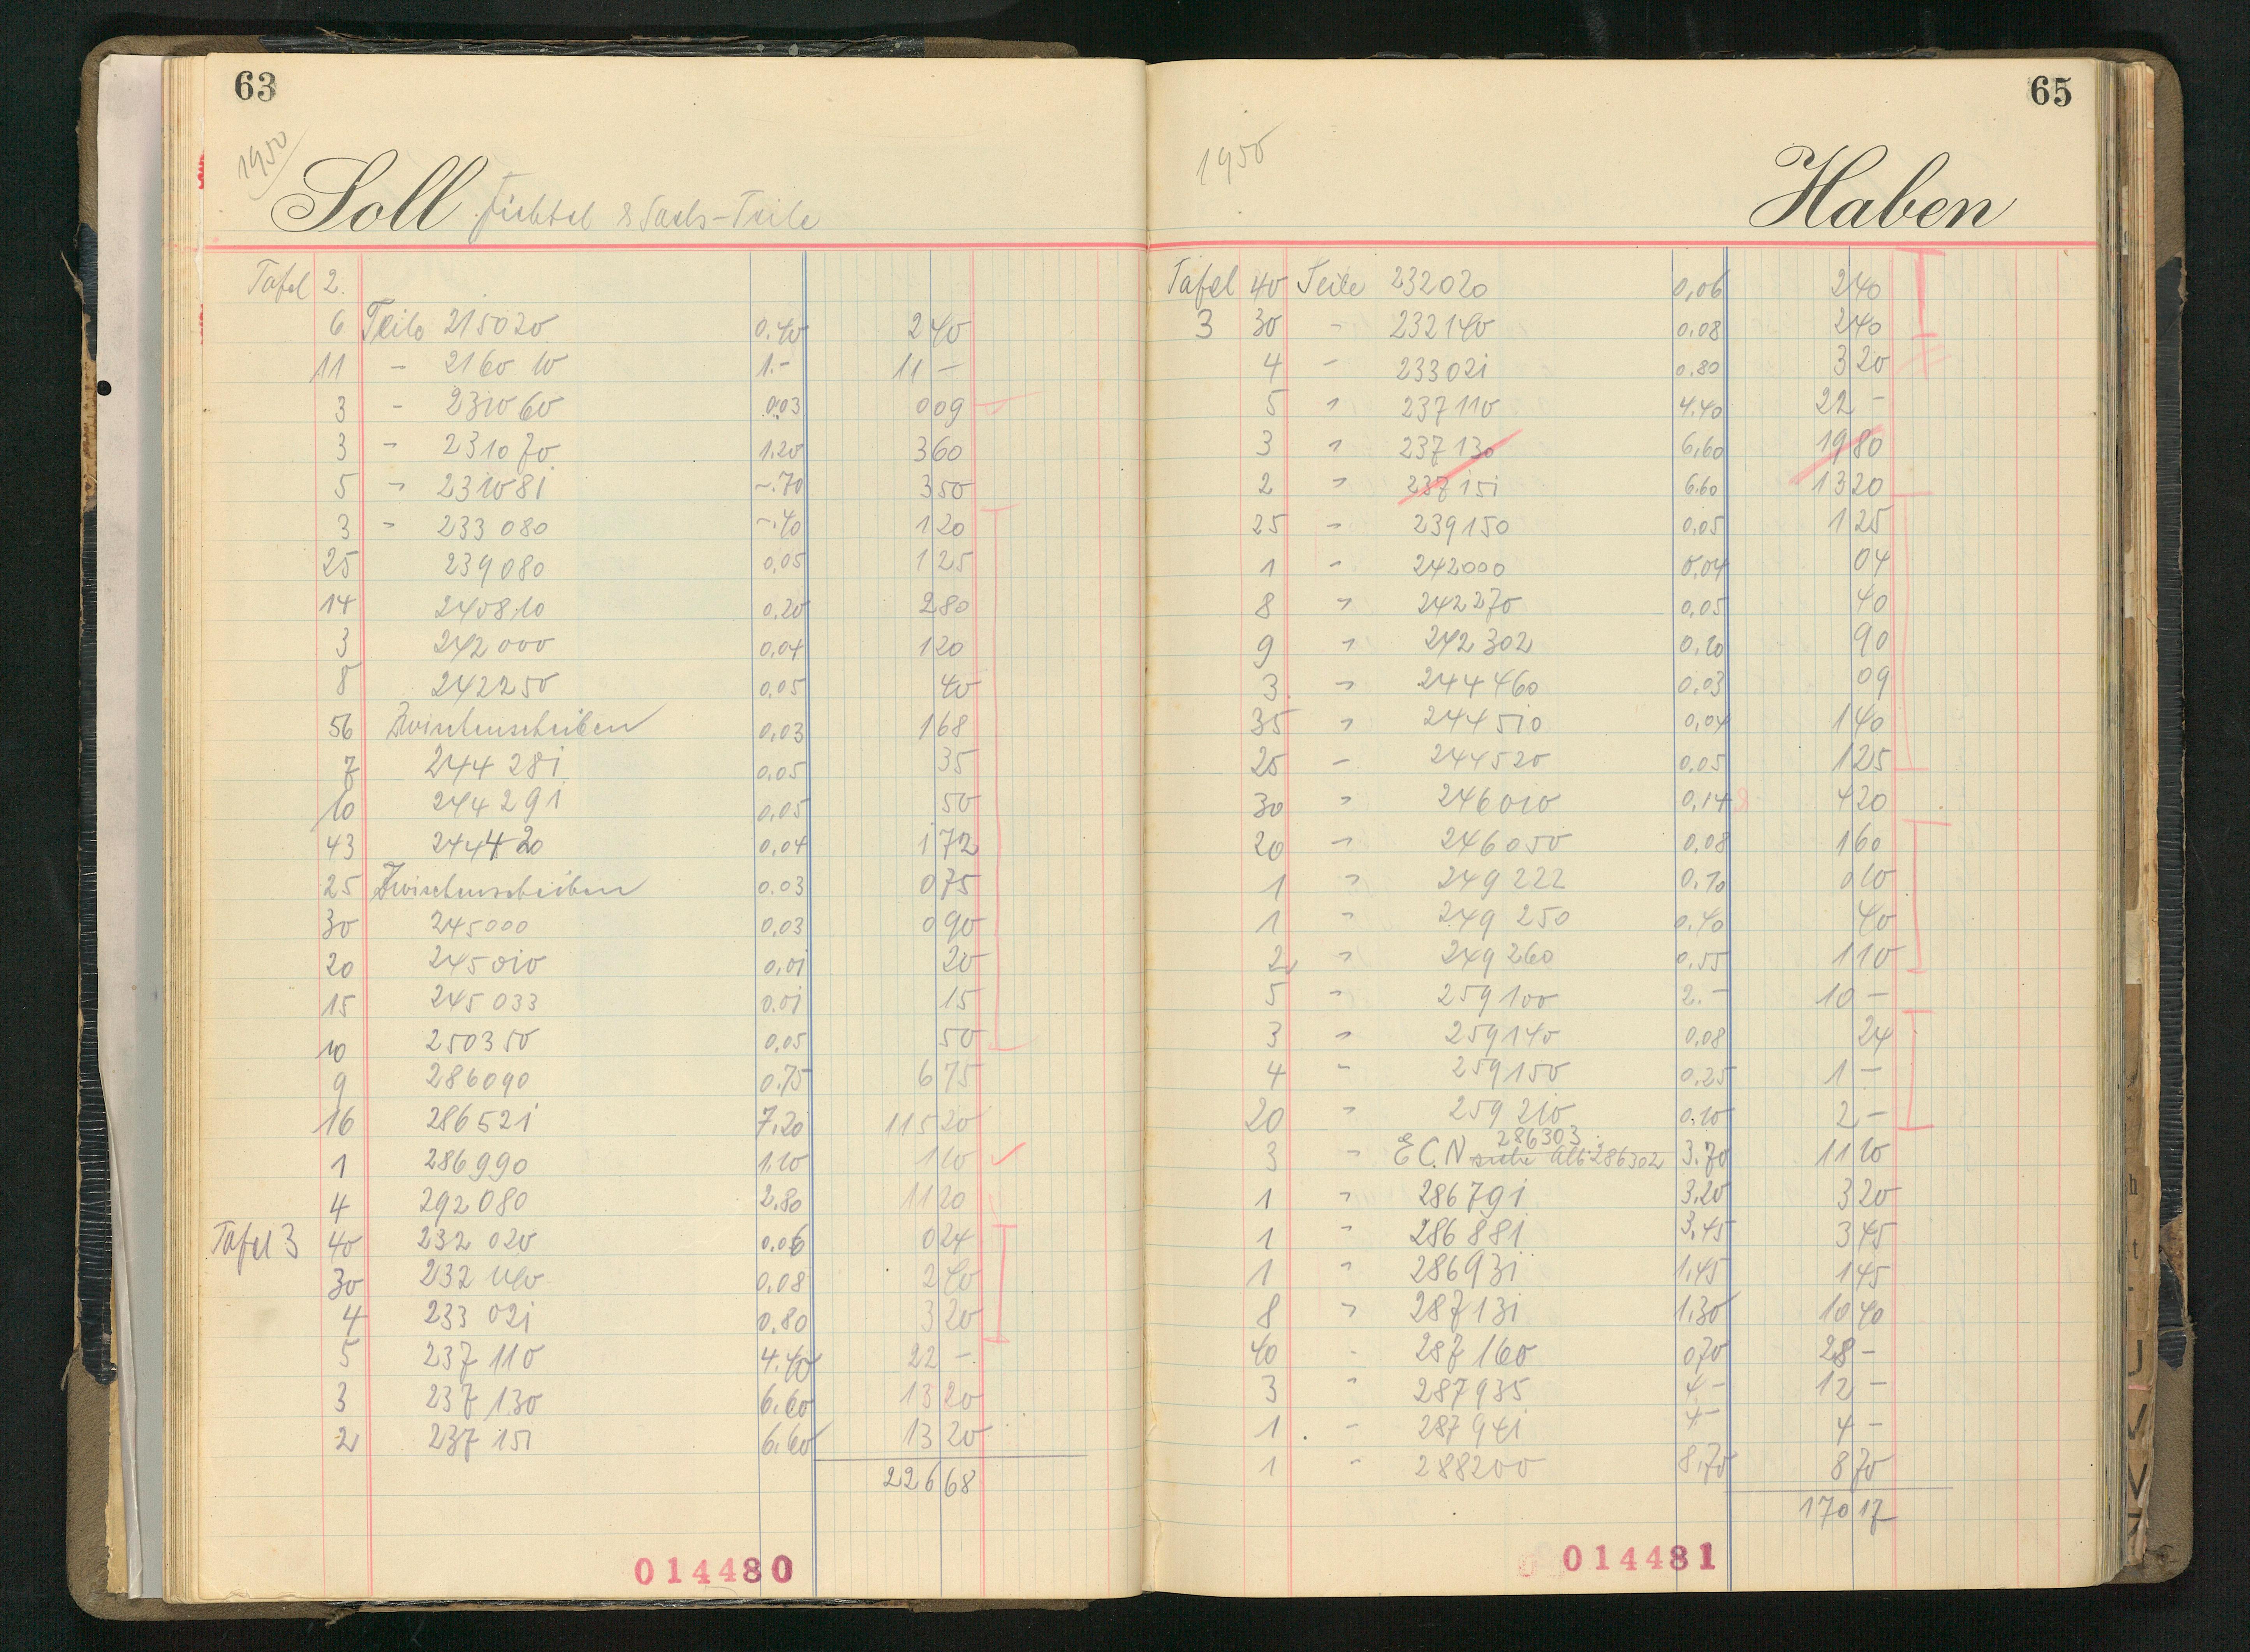 63
1950
Soll Fichtel & Sachs-Teile
Tafel 2.
6 Teile 215020 0.40 2 40
11 - 2160 10 1.- 11 -
3 - 231060 0.03 0 09
3 - 231070 1.20 3 60
5 - 231081 -.70 3 50
3 - 233 080 -.40 1 20
25 239080 0,05 1 25
14 240810 0,20 2 80
3 242000 0,04 1 20
8 242250 0,05 40
56 Zwischenscheiben 0,03 1 68
7 244 281 0,05 35
10 244291 0,05 50
43 244420 0,04 1 72
25 Zwischenscheiben 0.03 0 75
30 245000 0,03 0 90
20 245010 0,01 20
15 245033 0.01 15
10 250350 0,05 50
9 286090 0.75 6 75
16 286521 7.20 115 20
1 286990 1.10 1 10
4 292080 2.80 11 20
Tafel 3 40 232 020 0.06 0 24
30 232 140 0,08 2 40
4 233 021 0,80 3 20
5 237 110 4.40 22 -
3 237 130 6.60 13 20
2 237 151 6.60 13 20
226 68
014480
65
1950
Haben
Tafel 40 Teile 232020 0,06 2 40
3 30 - 232140 0.08 2 40
4 - 233021 0.80 3 20
5 " 237110 4.40 22 -
3 " 237130 6,60 19 80
2 " 237151 6.60 13 20
25 - 239150 0.05 1 25
1 - 242000 0,04 04
8 " 242270 0,05 40
9 " 242302 0,10 90
3 - 244460 0.03 09
35 " 244510 0,04 1 40
25 - 244520 0.05 1 25
30 " 246010 0,14 4 20
20 - 246050 0,08 1 60
1 " 249222 0.10 0 10
1 " 249 250 0.40 40
2 " 249260 0.55 1 10
5 - 259100 2.- 10 -
3 " 259140 0,08 24
4 - 259150 0,25 1 -
20 " 259210 0.10 2 -
286303
3 - E C.N siehe Alt 286302 3.70 11 10
1 " 286791 3.20 3 20
1 " 286881 3,45 3 45
1 " 286931 1,45 1 45
8 " 287131 1,30 10 40
40 - 287160 0 70 28 -
3 " 287935 4.- 12 -
1 - 287941 4.- 4 -
1 " 288200 8,70 8 70
170 17
014481